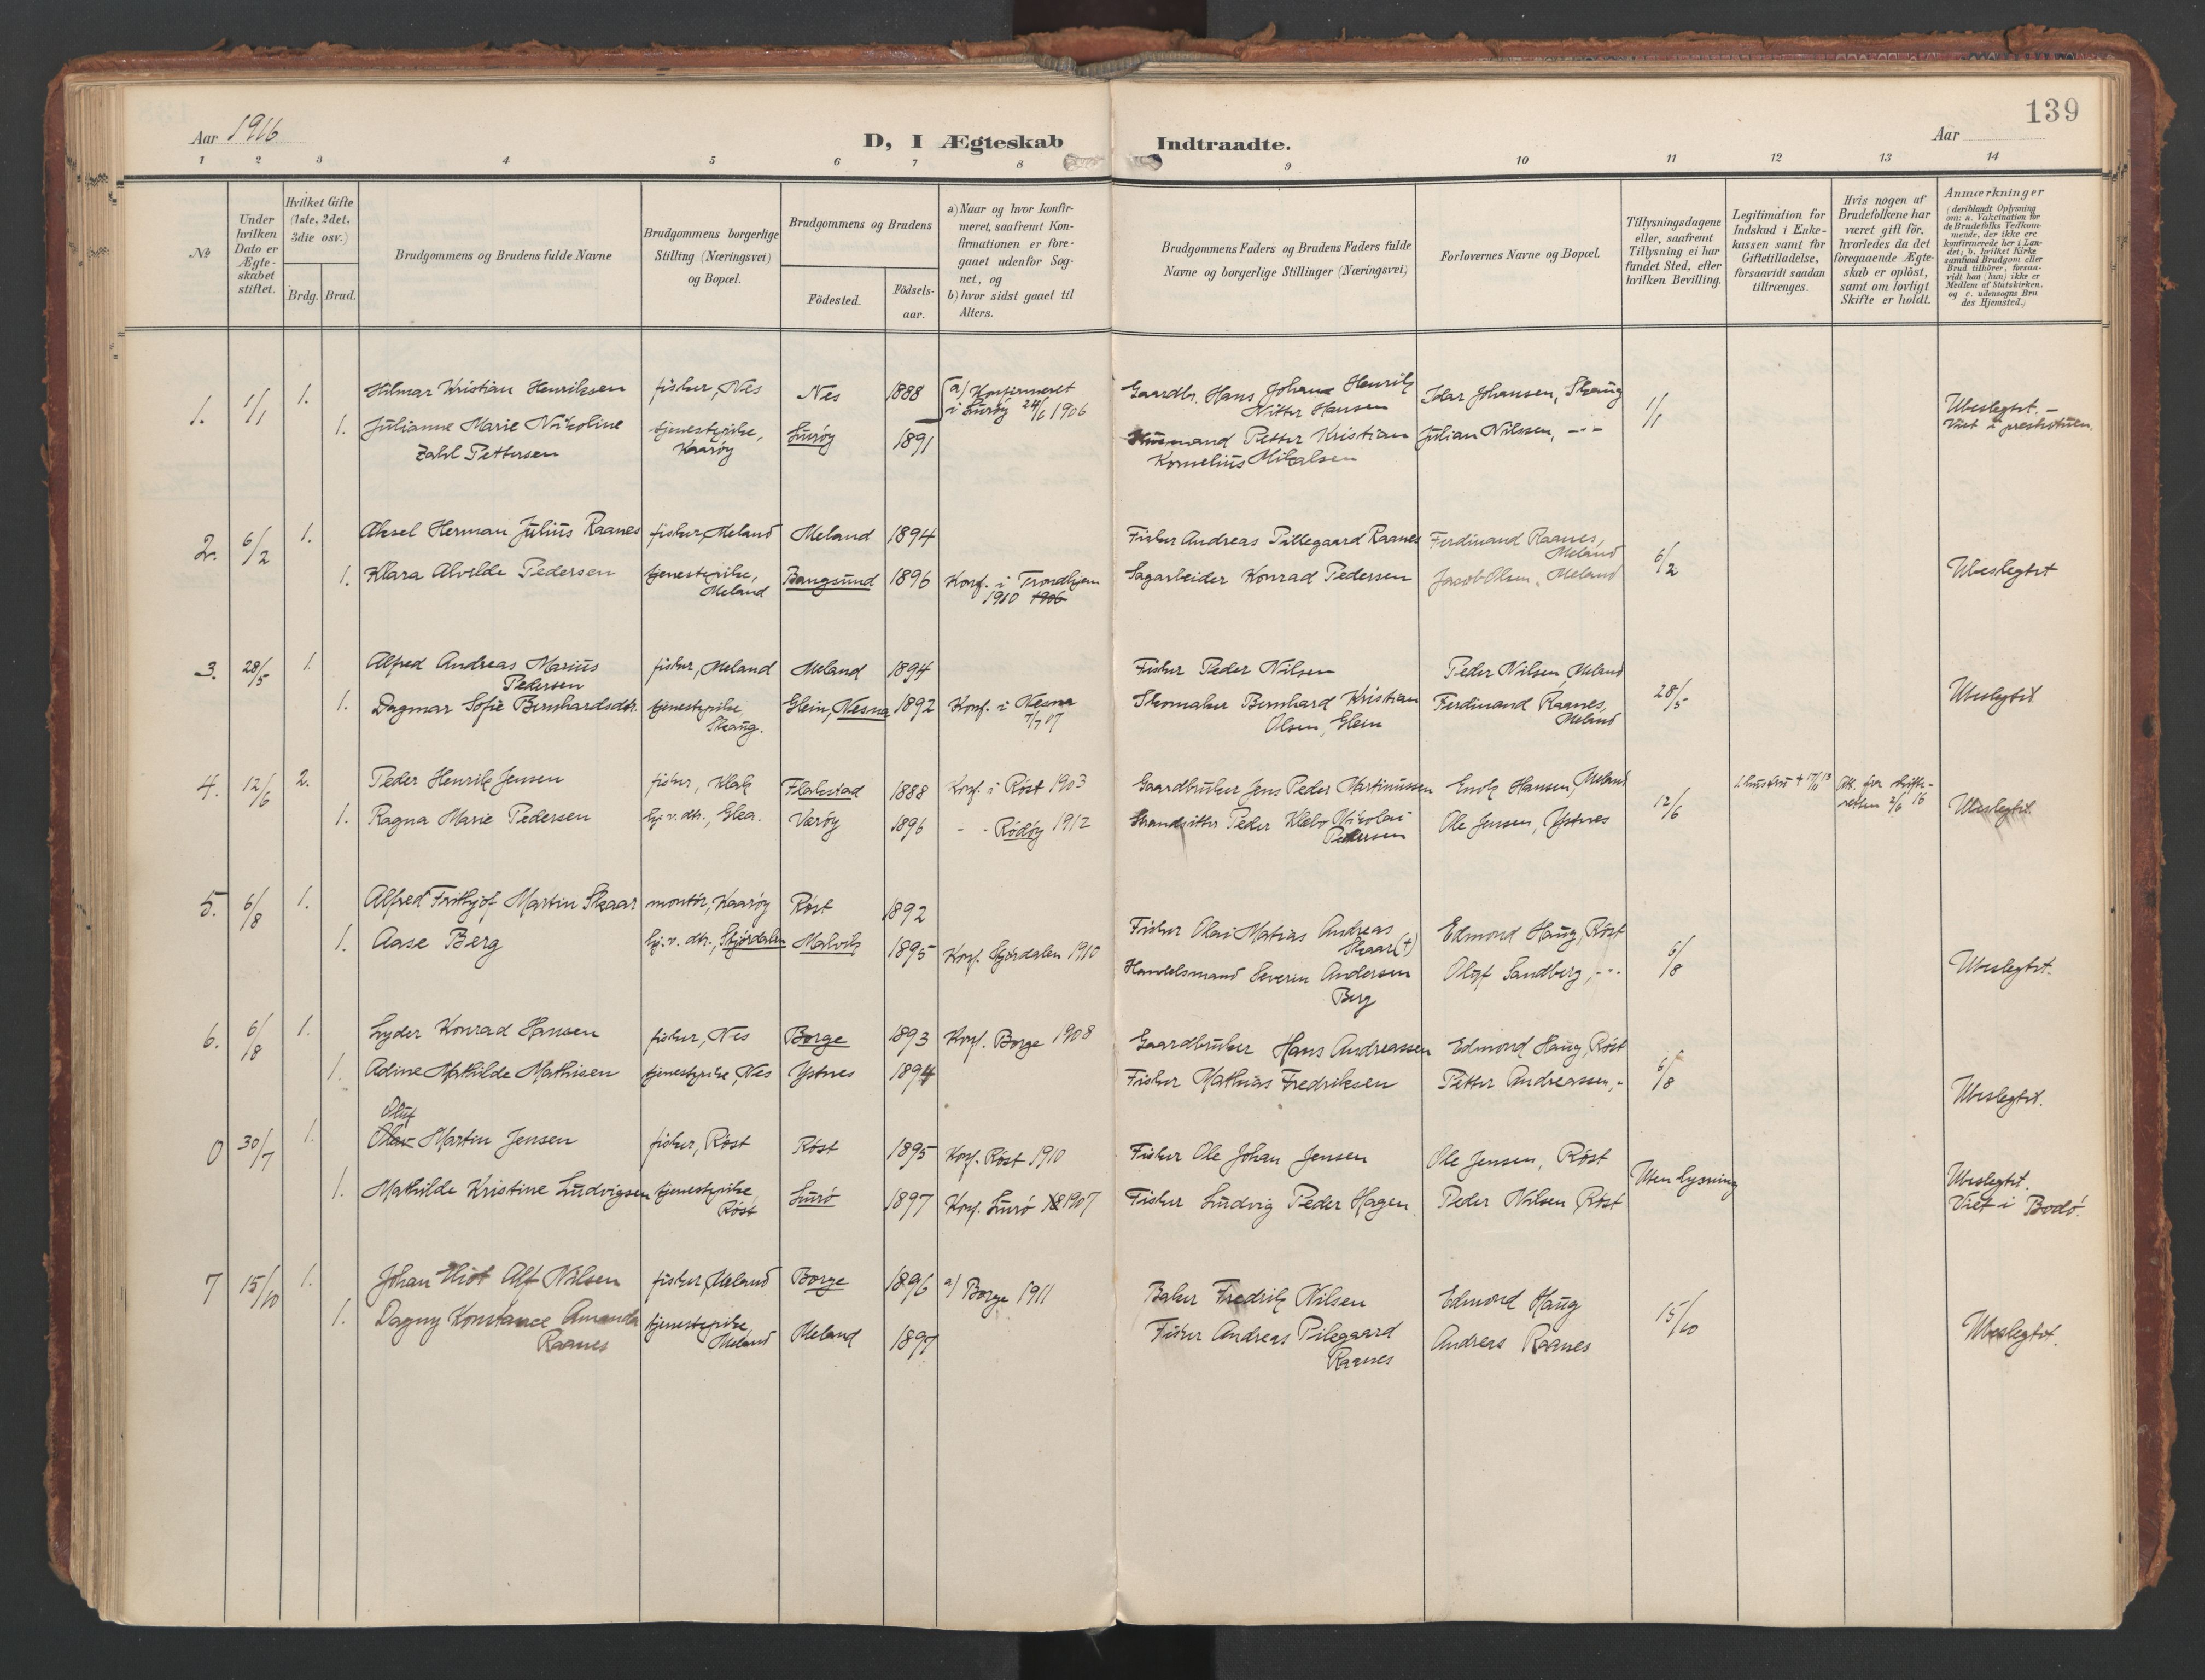 139
Aar 1916
D, I Ægteskab Indtraadte.
Aar
1 2 3 4 5 6 7 8 9 10 11 12 13 14
No
Under hvilken Dato er Ægte-skabet stiftet.
Hvilket Gifte (1ste, 2det, 3die osv.)
Brdg. Brud.
Brudgommens og Brudens fulde Navne
Brudgommens borgerlige Stilling (Næringsvei) og Bopæl.
Brudgommens og Brudens
Födested.
Födsels-aar.
a) Naar og hvor konfir-meret, saafremt Kon-firmationen er fore-gaaet udenfor Sog-net, og
b) hvor sidst gaaet til Alters.
Brudgommens Faders og Brudens Faders fulde Navne og borgerlige Stillinger (Næringsvei)
Forlovernes Navne og Bopæl.
Tillysningsdagene eller, saafremt Tillysning ei har fundet Sted, efter hvilken Bevilling.
Legitimation for Indskud i Enke-kassen samt for Giftetilladelse, forsaavidt saadan tiltrænges.
Hvis nogen af Brudefolkene har været gift för, hvorledes da det foregaaende Ægte-skab er oplöst, samt om lovligt Skifte er holdt.
Anmærkninger (deriblandt Oplysning om: a. Vakcination for de Brudefolks Vedkom-mende, der ikke ere konfirmerede her i Lan-det; b. hvilket Kirke samfund Brudgom eller Brud tilhörer, forsaa-vidt han (hun) ikke er Medlem af Statskirken. og c. udensogns Bru des Hjemsted.)
1. 1/1 1. Hilmar Kristian Henriksen fisker, Nes Nes 1888 a) Konfirmeret i Lurøy 24/6 1906 Gaardbr. Hans Johan Henrik Nitter Hansen Idar Johansen, Skaug 1/1 Ubeslegtet. - Viet i prestestuen.
1. Julianne Marie Nikoline Zahl Pettersen tjenestepike, Kaarøy Lurøy 1891 Husmand Petter Kristian Kornelius Mikalsen Julian Nilssen, -"-
2. 6/2 1. Aksel Herman Julius Raanes fisker, Meland Meland 1894 Fisker Andreas Pillegaard Raanes Ferdinand Raanes, Meland 6/2 Ubeslegtet
1. Klara Alvilde Pedersen tjenestepike, Meland Bangsund 1896 Konf. i Trondhjem 1910 1906 Sagarbeider Konrad Pedersen Jacob Olsen, Meland
3. 28/5 1. Alfred Andreas Marius Pedersen fisker, Meland Meland 1894 Fisker Peder Nilsen Peder Nilsen, Meland 28/5 Ubeslegtet
1. Dagmar Sofie Bernhardsdtr. tjenestepike Skaug. Glein, Nesna 1892 Konf. i Nesna 7/7 07 Skomaker Bernhard Kristian Olsen, Glein Ferdinand Raanes, Meland
4. 12/6 2. Peder Henrik Jensen fisker, Klak Flakstad 1888 Konf. i Røst 1903 Gaardbruker Jens Peder Martinussen Enok Hansen, Meland 12/6 Ubeslegtet.
1. Ragna Marie Pedersen hj. v. dtr., Glea. Værøy 1896 - - Rødøy 1912 Strandsitter Peder Klebo Nikolai Pedersen Ole Jensen, Ystnes
5. 6/8 1. Alfred Frithjof Martin Skaar montør, Kaarøy Røst 1892 Fisker Olai Matias Andreas Skaar (+) Edmond Haug, Røst 6/8 Ubeslegtet.
1. Aase Berg hj. v. dtr., Stjørdalen Malvik 1895 Konf. Stjørdalen 1910 Handelsmand Severin Andersen Berg Olaf Sandberg, -"-
6. 6/8 1. Lyder Konrad Hansen fisker, Nes Borge 1893 Konf. Borge 1908 Gaardbruker Hans Andreassen Edmond Haug, Røst 6/8 Ubeslegtet.
1. Adine Mathilde Mathisen tjenestepike, Nes Ystnes 1894 Fisker Mathias Fredriksen Petter Andreassen, -
0 30/7 1. Oluf Olav Martin Jensen fisker, Røst Røst 1895 Konf. Røst 1910 Fisker Ole Johan Jensen Ole Jensen, Røst Uten lysning Ubeslegtet. Viet i Bodø.
1. Mathilde Kristine Ludvigsen tjenestepike Røst Lurø 1897 Konf. Lurø 1907 Fisker Ludvig Peder Hagen Peder Nilsen Røst
7 15/10 1. Johan Hiot Alf Nilsen fisker, Meland Borge 1896 a) Borge 1911 Baker Fredrik Nilsen Edmond Haug 15/10 Ubeslegtet.
1. Dagny Konstance Amanda Raanes tjenestepike Meland Meland 1897 Fisker Andreas Pilegaard Raanes Andreas Raanes